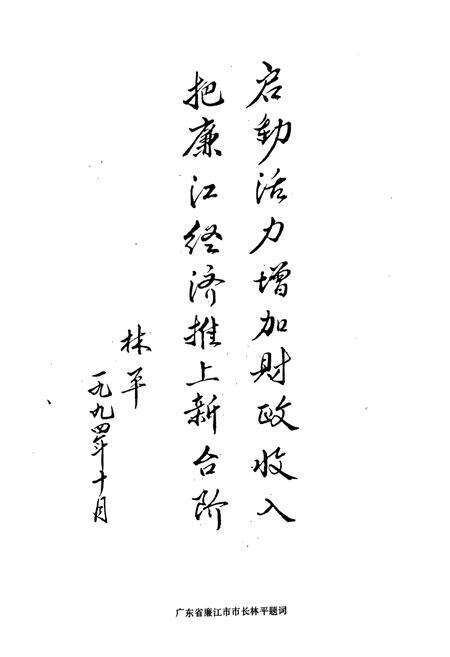 启动活力增加财政收入
把廉江经济推上新台阶
林平
一九九四年十月
广东省廉江市市长林平题词